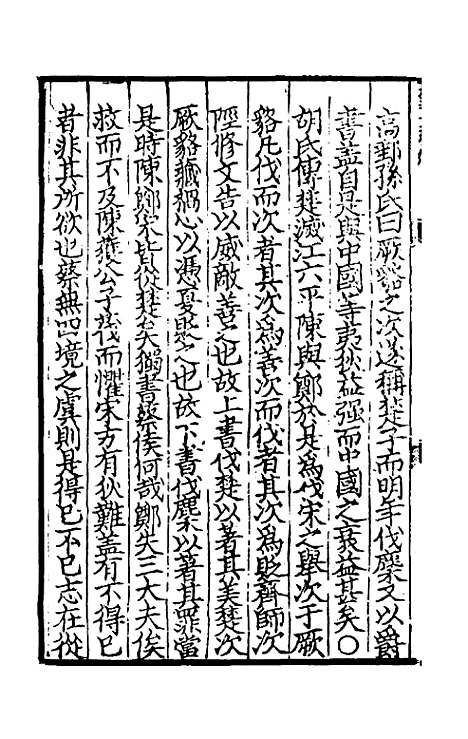 高郵孫氏曰厥貉之次遂稱楚子而明年伐麇又以爵
書蓋自是與中國等夷狄益强而中國之衰益甚矣〇
胡氏傳楚滅江六平陳與鄭於是爲伐宋之舉次于厥
貉凡伐而次者其次爲善次而伐者其次爲貶齊師次
陘修文告以威敵善之也故上書伐楚以著其美楚次
厥貉藏禍心以憑夏貶之也故下書伐麇以著其罪當
是時陳鄭宋皆從楚矣獨書蔡侯何哉鄭失三大夫俟
救而不及陳獲公子茷而懼宋方有狄難蓋有不得已
者非其所欲也蔡無四境之虞則是得已不已志在從